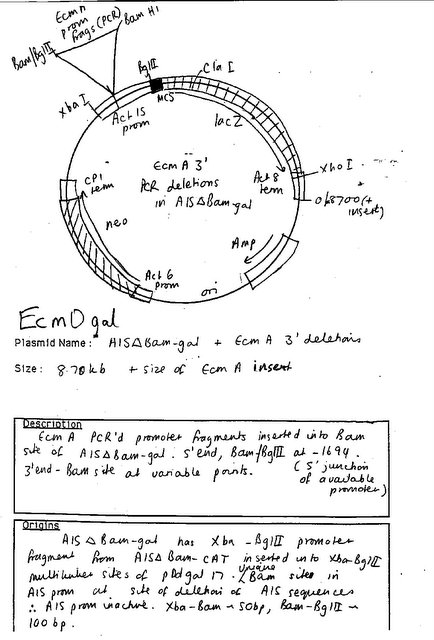 EcmA
prom
frags (PCR)
Bam H1
Bam/BglII
BglII
Cla I
Xba I
MCS
Act 15
prom
lacZ
EcmA 3'
PCR deletions
in A15ΔBam-gal
CP1
term
Act 8
term
Xho I
0/8700 (+
insert)
neo
Amp
Act 6
prom
ori
EcmO gal
Plasmid Name: A15ΔBam-gal + EcmA 3' deletions
Size: 8.70kb + size of EcmA insert
Description
EcmA PCR'd promoter fragments inserted into Bam
site of A15ΔBam-gal. 5'end, Bam/BglII at -1694.
3'end - Bam site at variable points. (5' junction
of available
promoter)
Origins
A15ΔBam-gal has Xba-BglII promoter
fragment from A15ΔBam-CAT inserted into Xba-BglII
multilinker sites of pDdgal 17. Unique Bam sites in
A15 prom at site of deletion of A15 sequences
∴ A15 prom inactive. Xba-Bam ~ 50bp, Bam-BglII ~
100 bp.